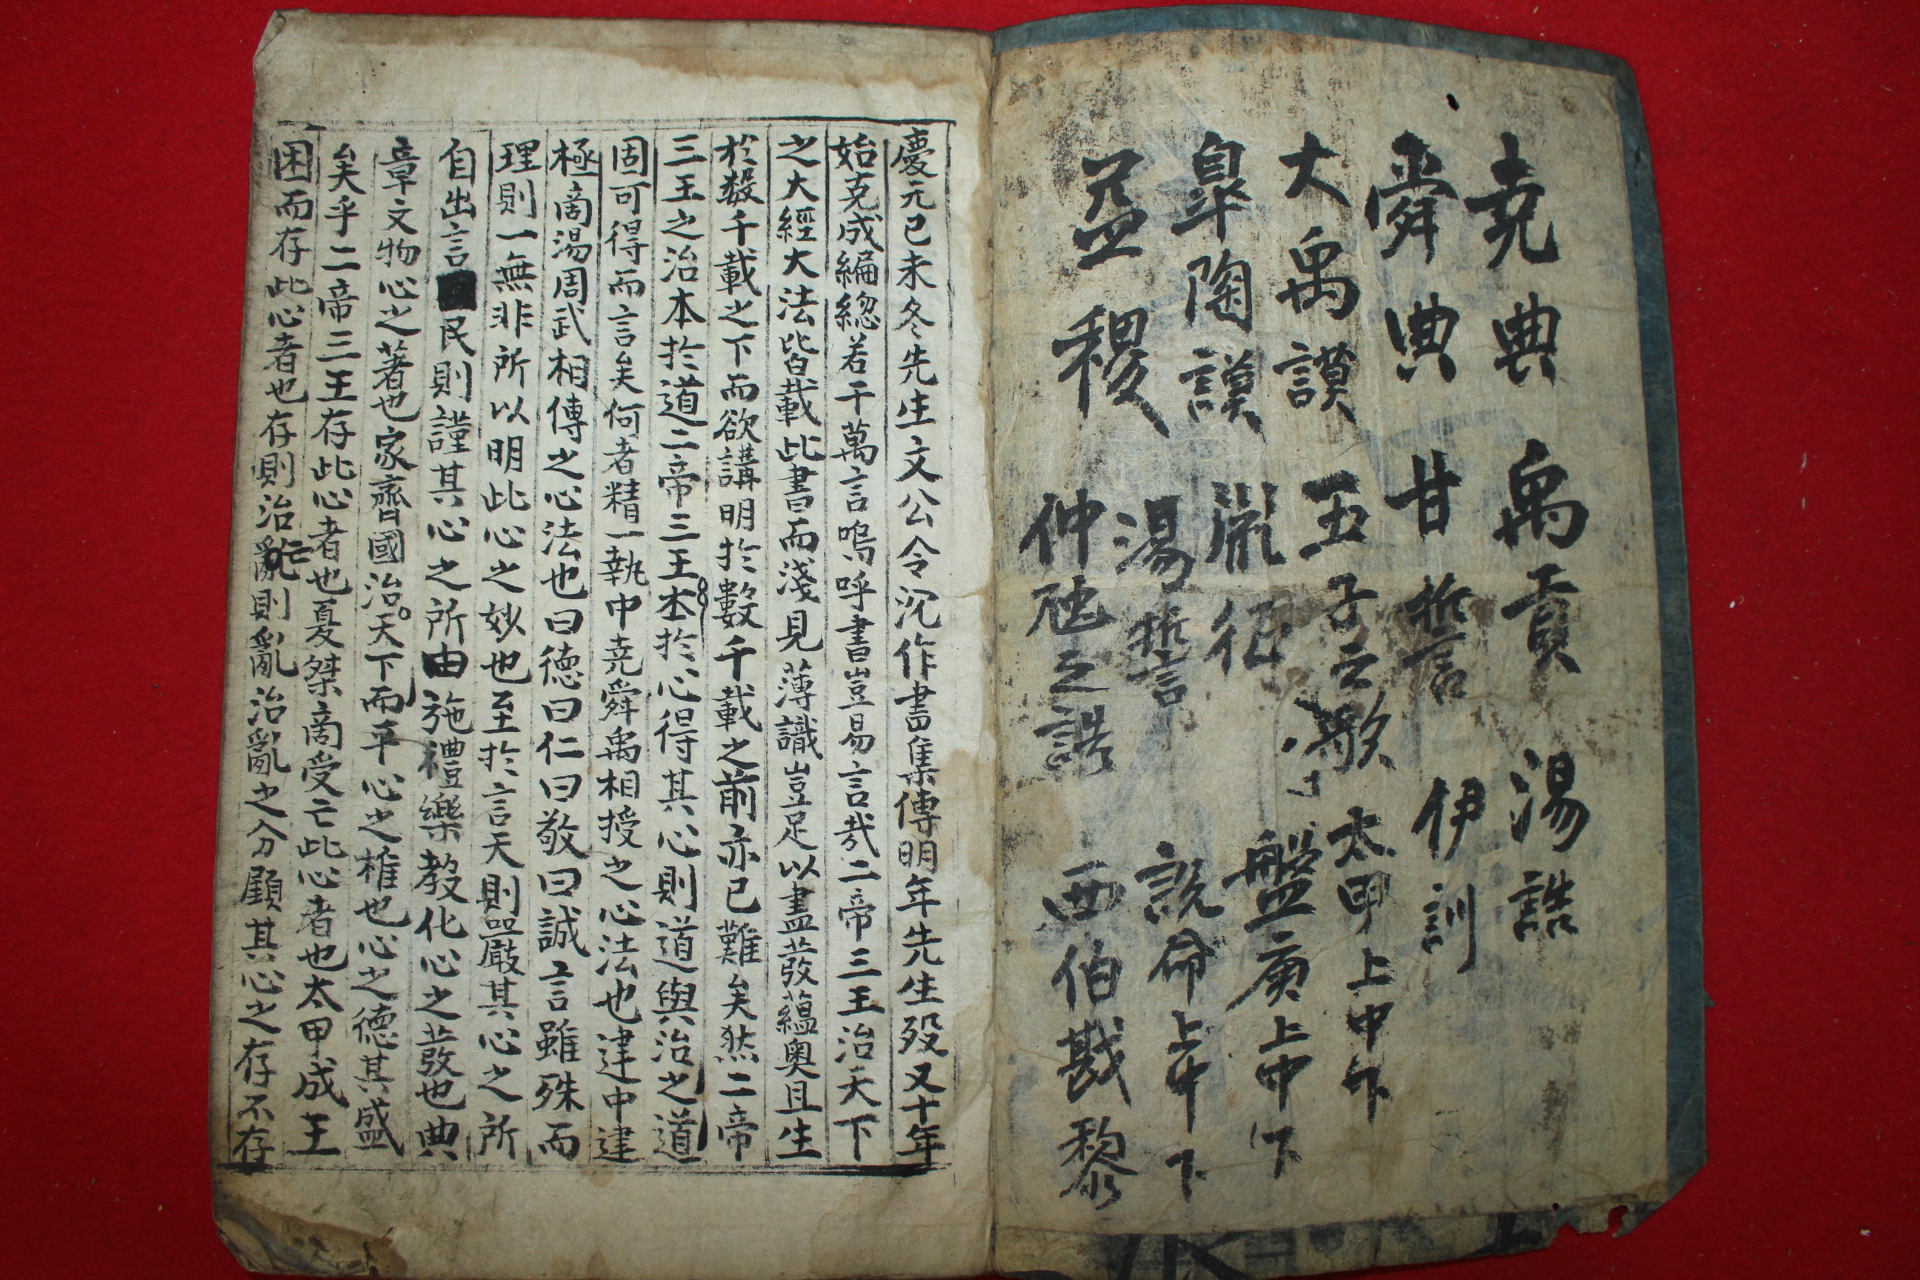 堯典 禹貢 湯誥
舜典 甘誓 伊訓
大禹謨 五子之歌 太甲上中下
皐陶謨 胤征 盤庚上中下
益稷 湯誓 說命上中下
仲虺之誥 西伯戡黎
慶元己未冬先生文公令沉作書集傳明年先生歿又十年
始克成編總若干萬言嗚呼書豈易言哉二帝三王治天下
之大經大法皆載此書而淺見薄識豈足以盡發蘊奧且生
於數千載之下而欲講明於數千載之前亦已難矣然二帝
三王之治本於道二帝三王本於心得其心則道與治之道
固可得而言矣何者精一執中堯舜禹相授之心法也建中建
極商湯周武相傳之心法也曰德曰仁曰敬曰誠言雖殊而
理則一無非所以明此心之妙也至於言天則嚴其心之所
自出言民則謹其心之所由施禮樂教化心之發也典
章文物心之著也家齊國治天下而平心之推也心之德其盛
矣乎二帝三王存此心者也夏桀商受亡此心者也太甲成王
困而存此心者也存則治亡則亂治亂之分顧其心之存不存